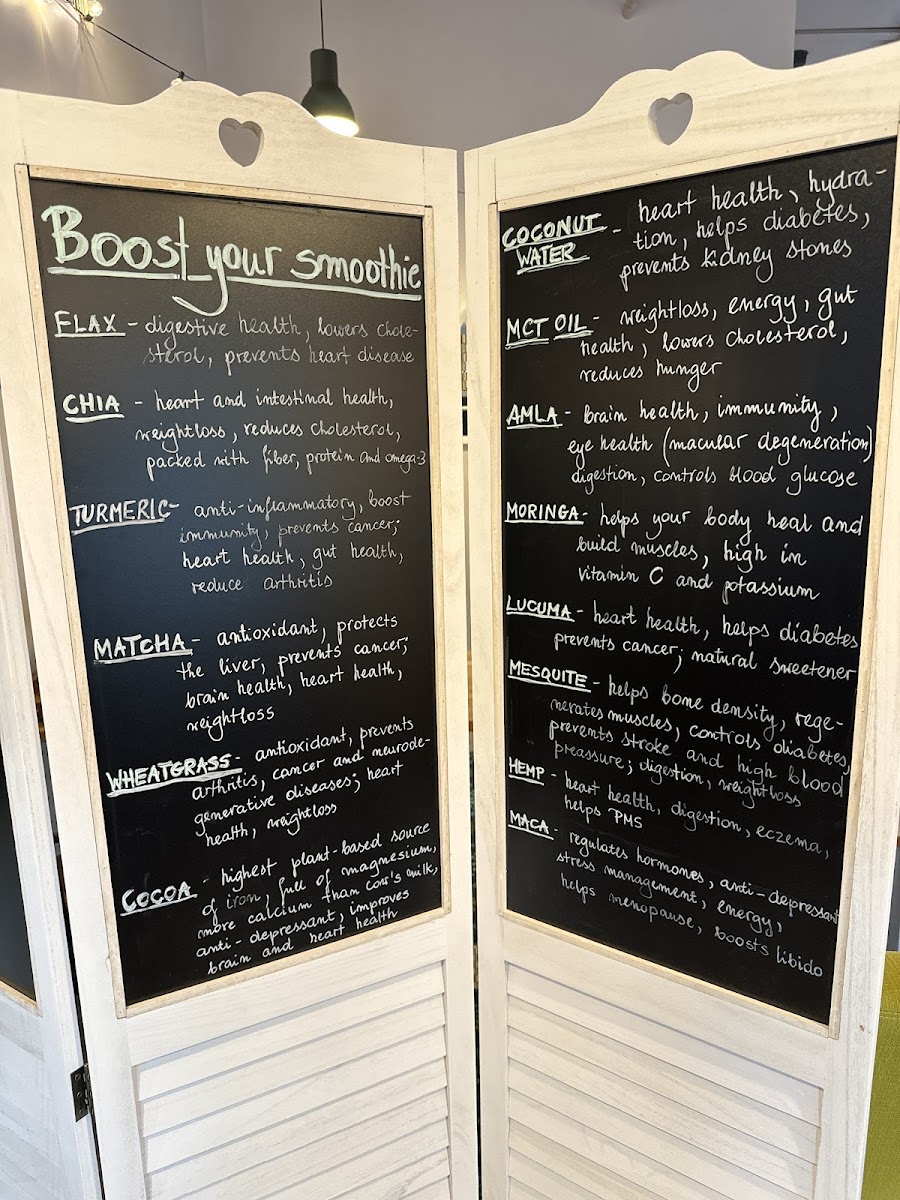 Boost your smoothie
FLAX - digestive health, lowers chole-
sterol, prevents heart disease
CHIA - heart and intestinal health,
weightloss, reduces cholesterol,
packed with fiber, protein and omega-3
TURMERIC- anti-inflammatory, boost
immunity, prevents cancer;
heart health, gut health,
reduce arthritis
MATCHA - antioxidant, protects
the liver, prevents cancer;
brain health, heart health,
weightloss
WHEATGRASS- antioxidant, prevents
arthritis, cancer and neurode-
generative diseases; heart
health, weightloss
COCOA - highest plant-based source
of iron, full of magnesium,
more calcium than cow's milk,
anti-depressant, improves
brain and heart health
COCONUT WATER - heart health, hydra-
tion, helps diabetes,
prevents kidney stones
MCT OIL - weightloss, energy, gut
health, lowers cholesterol,
reduces hunger
AMLA - brain health, immunity,
eye health (macular degeneration)
digestion, controls blood glucose
MORINGA - helps your body heal and
build muscles, high in
vitamin C and potassium
LUCUMA - heart health, helps diabetes
prevents cancer; natural sweetener
MESQUITE - helps bone density, rege-
nerates muscles, controls diabetes,
prevents stroke and high blood
preassure; digestion, weightloss
HEMP - heart health, digestion, eczema,
helps PMS
MACA - regulates hormones, anti-depressant
stress management, energy,
helps menopause, boosts libido